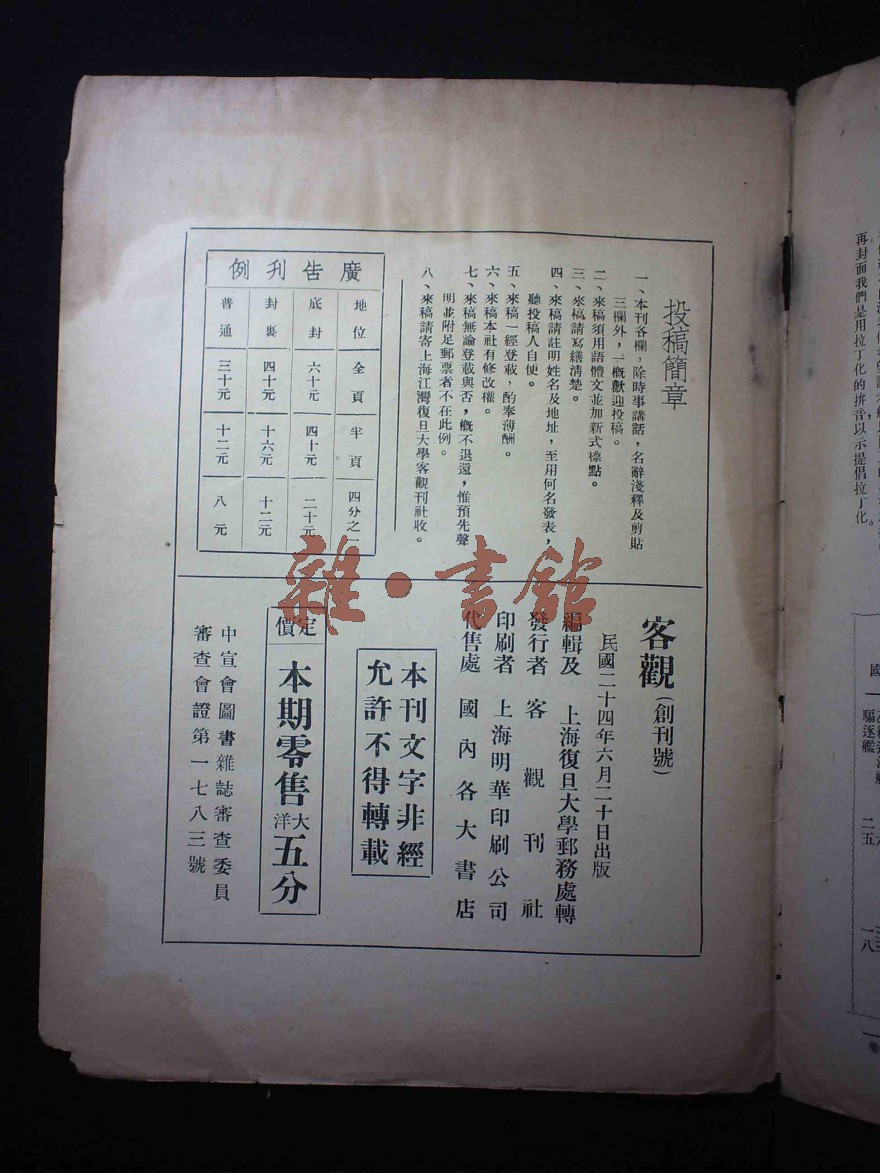 投稿簡章
一、本刊各欄，除時事講話，名辭淺釋及剪貼
三欄外，一概歡迎投稿。
二、來稿須用語體文並加新式標點。
三、來稿請寫繕清楚。
四、來稿請註明姓名及地址，至用何名發表，
聽投稿人自便。
五、來稿一經登載，酌奉薄酬。
六、來稿本社有修改權。
七、來稿無論登載與否，概不退還，惟預先聲
明並附足郵票者不在此例。
八、來稿請寄上海江灣復旦大學客觀刊社收。
廣告刊例
地位 全頁 半頁 四分之一
底封 六十元 四十元 二十元
封裏 四十元 十六元 十二元
普通 三十元 十二元 八元
客觀（創刊號）
民國二十四年六月二十日出版
編輯及 上海復旦大學郵務處轉
發行者 客觀刊社
印刷者 上海明華印刷公司
代售處 國內各大書店
本刊文字非經
允許不得轉載
定價
本期零售大洋五分
中宣會圖書雜誌審查委員
審查會證第一七八三號
雜·書館
再封面我們是用拉丁化的拼音以示提倡拉丁化。
國
驅逐艦
二五
一八